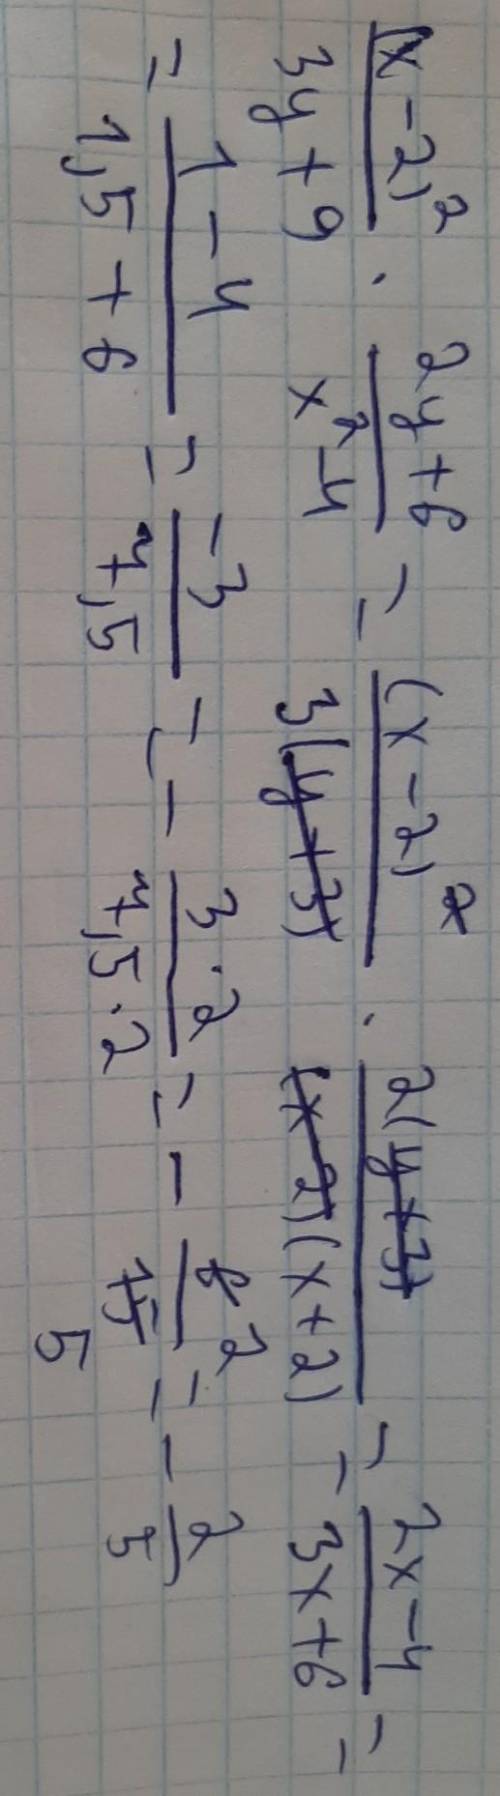 (x-2)²/3y+9 · 2y+6/x²-4 = (x-2)²/3(y+3) · 2(y+3)/(x-2)(x+2) = 2x-4/3x+6 =
= 1-4/1,5+6 = -3/7,5 = - 3·2/7,5·2 = - 6 2/15 5 = - 2/5